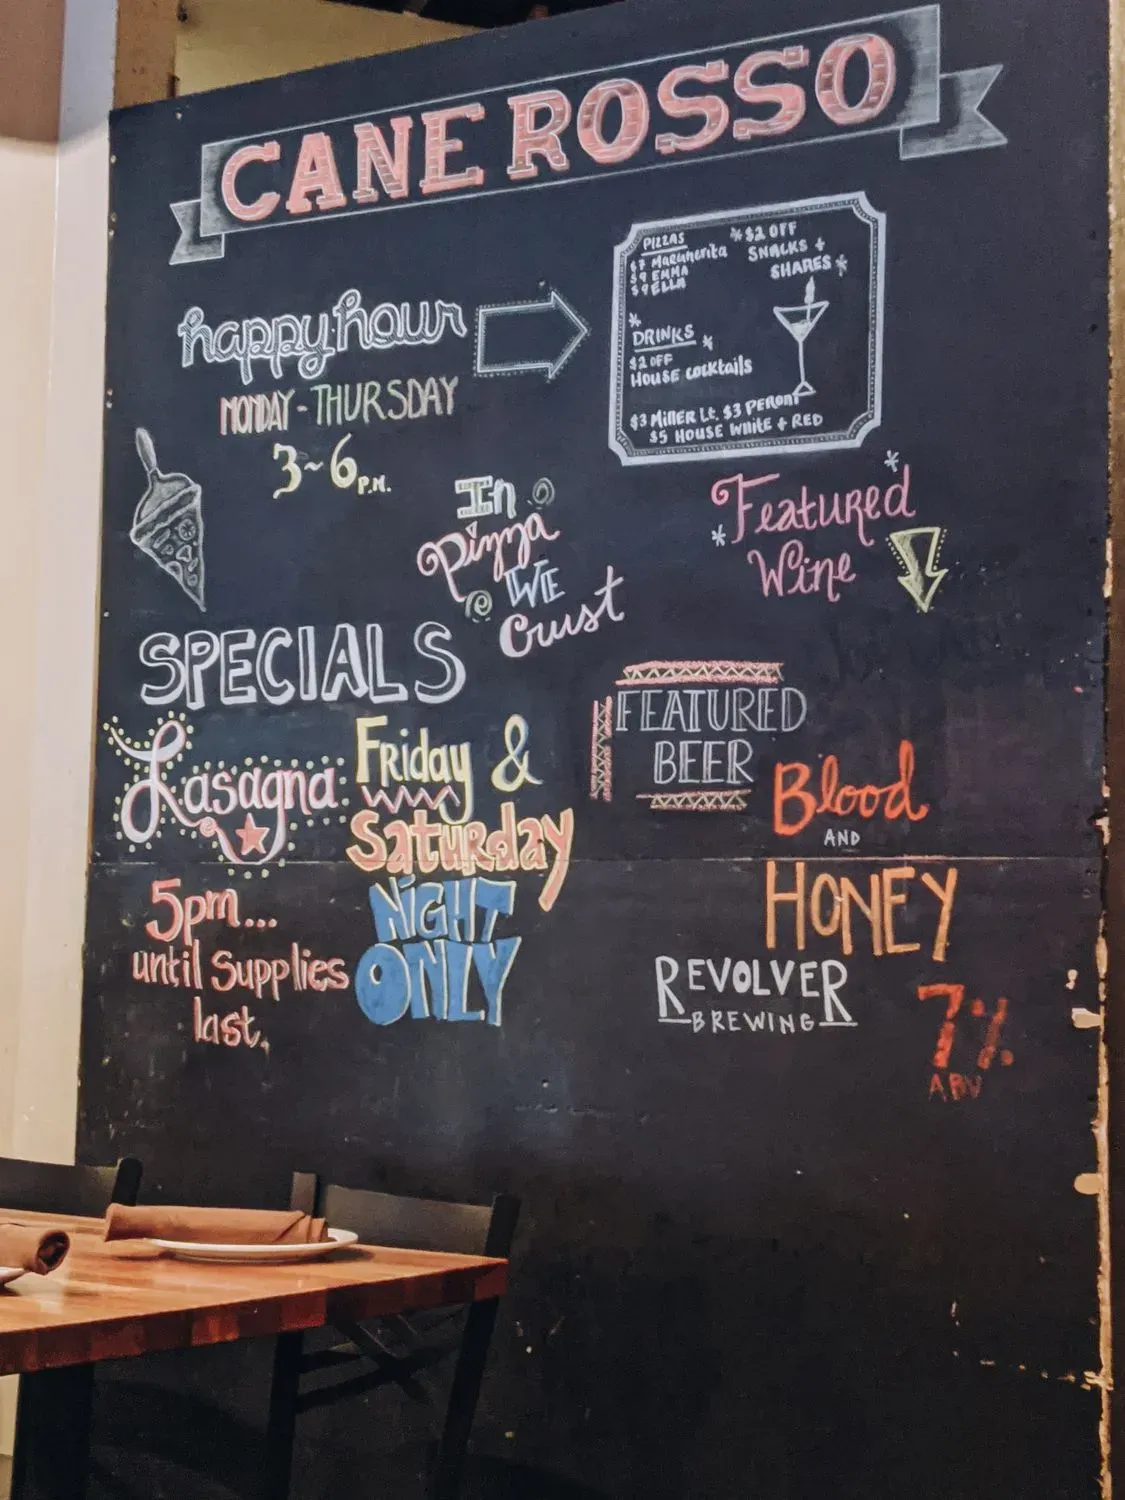 CANE ROSSO
happy hour
MONDAY - THURSDAY
3~6 P.M.
PIZZAS
$7 Margherita
$9 EMMA
$9 ELLA
*$2 OFF
SNACKS +
SHARES*
* DRINKS *
$2 OFF
HOUSE cocktails
$3 Miller Lt. $3 PERONI
$5 HOUSE White + RED
In
Pizza
WE
Crust
*Featured*
Wine
SPECIALS
Lasagna
Friday &
Saturday
NIGHT
ONLY
5pm...
until supplies
last.
FEATURED
BEER
Blood
AND
HONEY
REVOLVER
BREWING
7%
ABV